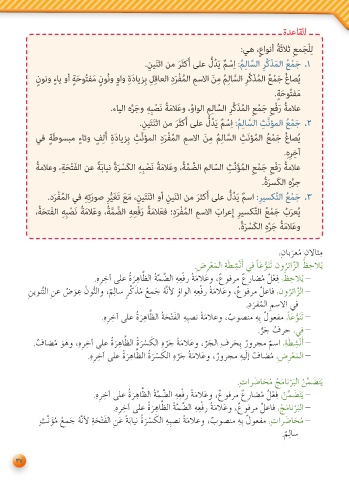 القاعدة
لِلْجَمعِ ثلاثةُ أنواعٍ، هيَ:
١. جَمْعُ المذَكَّرِ السَّالِمُ: اِسْمٌ يَدُلُّ على أَكثَرَ مِن اثنَينِ.
يُصاغُ جَمْعُ المُذَكَّرِ السَّالِمُ مِنَ الاسمِ المُفْرَدِ العاقِلِ بِزِيادَةِ واوٍ ونُونٍ مَفتُوحَةٍ أو ياءٍ ونونٍ
مَفتُوحَةٍ.
علامةُ رَفْعِ جَمْعِ المُذَكَّرِ السَّالِمِ الواوُ، وعَلامَةُ نَصْبِهِ وجَرِّهِ الياء.
٢. جَمْعُ المؤنَّثِ السَّالِمُ: اِسْمٌ يَدُلُّ على أَكثَرَ مِن اثنَتَينِ.
يُصاغُ جَمْعُ المُؤنَّثِ السَّالِمُ مِنَ الاسمِ المُفْرَدِ المؤنَّثِ بِزِيادَةِ أَلِفٍ وتاءٍ مبسوطَةٍ في
آخِرِهِ.
علامَةُ رَفْعِ جَمْعِ المُؤنَّثِ السَّالِمِ الضَّمَّةُ، وعَلَامَةُ نَصْبِهِ الكَسْرَةُ نيابَةً عن الفَتْحَةِ، وعلامةُ
جرِّهِ الكَسرَةُ.
٣. جَمْعُ التَّكسيرِ: اسمٌ يَدُلُّ على أَكثَرَ مِن اثنَينِ أو اثنَتَينِ، مَعَ تَغَيُّرِ صورَتِهِ في المُفْرَد.
يُعرَبُ جَمْعُ التَّكسيرِ إعرابَ الاسمِ المُفْرَدِ؛ فعَلامَةُ رَفْعِهِ الضَّمَّةُ، وعَلامَةُ نَصْبِهِ الفَتحَةُ،
وعَلامَةُ جَرِّهِ الكَسْرَةُ.
مِثالانِ مُعرَبانِ:
يُلاحِظُ الزَّائِرُونَ تَنَوُّعَاً في أَنْشِطَةِ المَعْرَضِ.
– يُلاحِظُ: فِعْلٌ مُضارعٌ مَرفوعٌ، وعَلامَةُ رَفْعِهِ الضّمَّةُ الظّاهِرَةُ على آخِرِهِ.
– الزَّائِرُونَ: فاعلٌ مرفوعٌ، وعَلامَةُ رَفْعِهِ الواوُ لأنَّهُ جَمعُ مُذَكّرٍ سالِمٌ، والنُّونُ عِوَضٌ عنِ التَّنوينِ
في الاسمِ المُفرَدِ.
– تَنَوُّعَاً: مفعولٌ بِهِ منصوبٌ، وعلامَةُ نصبِهِ الفَتْحَةُ الظّاهِرَةُ على آخِرِهِ.
– في: حرفُ جَرٍّ.
– أَنْشِطَةِ: اسمٌ مجرورٌ بِحَرفِ الجَرِّ، وعَلامَةُ جَرِّهِ الكَسْرَةُ الظّاهِرَةُ على آخِرِهِ، وهوَ مُضافٌ.
– المَعْرَضِ: مُضافٌ إلَيهِ مجرورٌ، وعَلامَةُ جَرِّهِ الكَسْرَةُ الظّاهِرَةُ على آخِرِهِ.
يَتَضَمَّنُ البَرْنامَجُ مُحَاضَراتٍ.
– يَتَضَمَّنُ: فِعْلٌ مُضارعٌ مَرفوعٌ، وعَلامَةُ رَفْعِهِ الضّمَّةُ الظّاهِرَةُ على آخِرِهِ.
– البَرْنامَجُ: فاعلٌ مرفوعٌ، وعَلامَةُ رفْعِهِ الضَّمَّةُ الظّاهِرَةُ على آخِرِهِ.
– مُحَاضَراتٍ: مفعولٌ بِهِ منصوبٌ، وعلامَةُ نصبِهِ الكَسْرَةُ نيابَةً عَنِ الفَتْحَةِ لأنّهُ جَمعُ مُؤنَّثٍ
سالِمٌ.